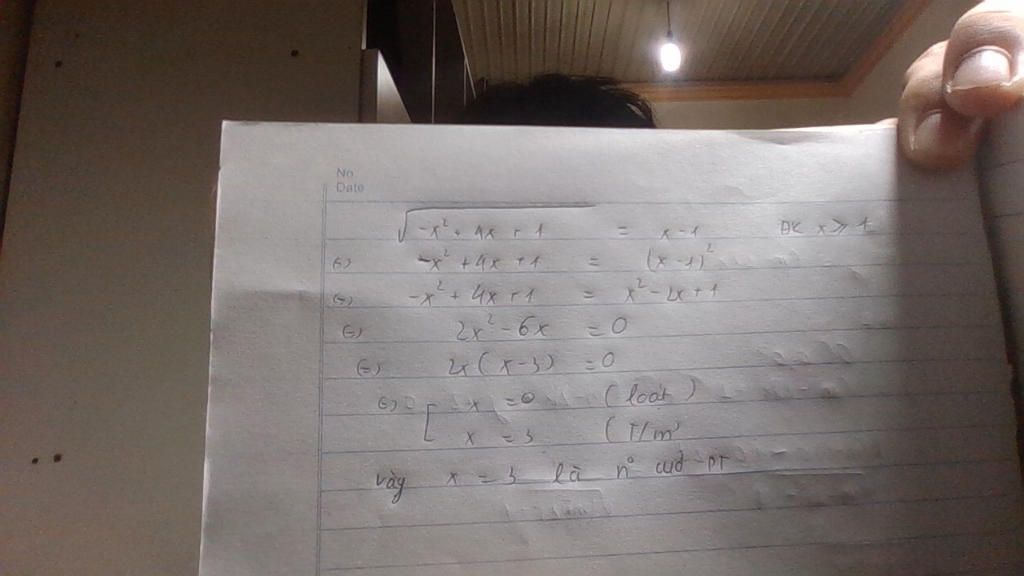 No
Date
√(-x² + 4x + 1) = x - 1 ĐK x ≥ 1
(=) -x² + 4x + 1 = (x - 1)²
(=) -x² + 4x + 1 = x² - 2x + 1
(=) 2x² - 6x = 0
(=) 2x(x - 3) = 0
(=) [ x = 0 (loại)
x = 3 (T/m)
vậy x = 3 là n° của PT